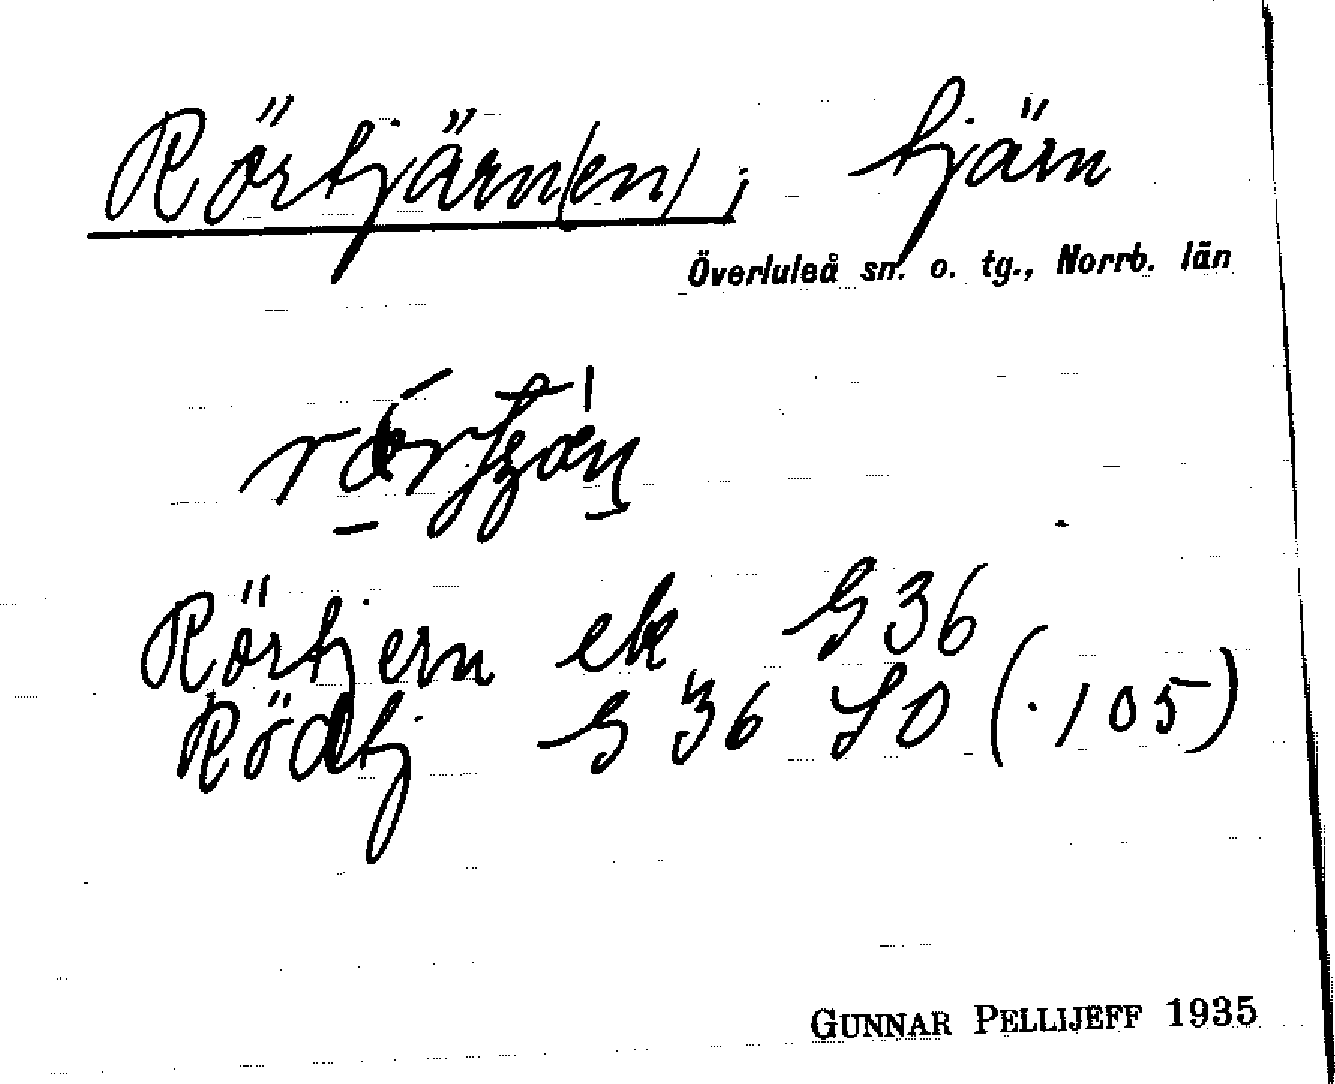 Rörtjärn(en), tjärn
Överluleå sn. o. tg., Norrb. län
Rörtjern ek G36
Rödtj G 36 SO (.105)
GUNNAR PELLIJEFF 1935